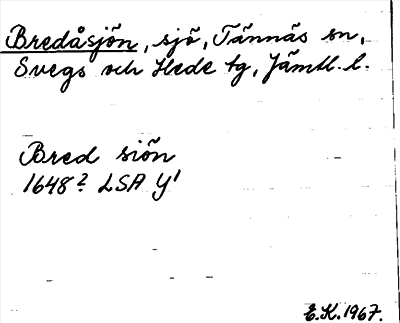 Bredåsjön, sjö, Tännäs sn,
Svegs och Hede tg, Jämtl. l.
Bred siön
1648? LSA Y¹
E.K. 1967.